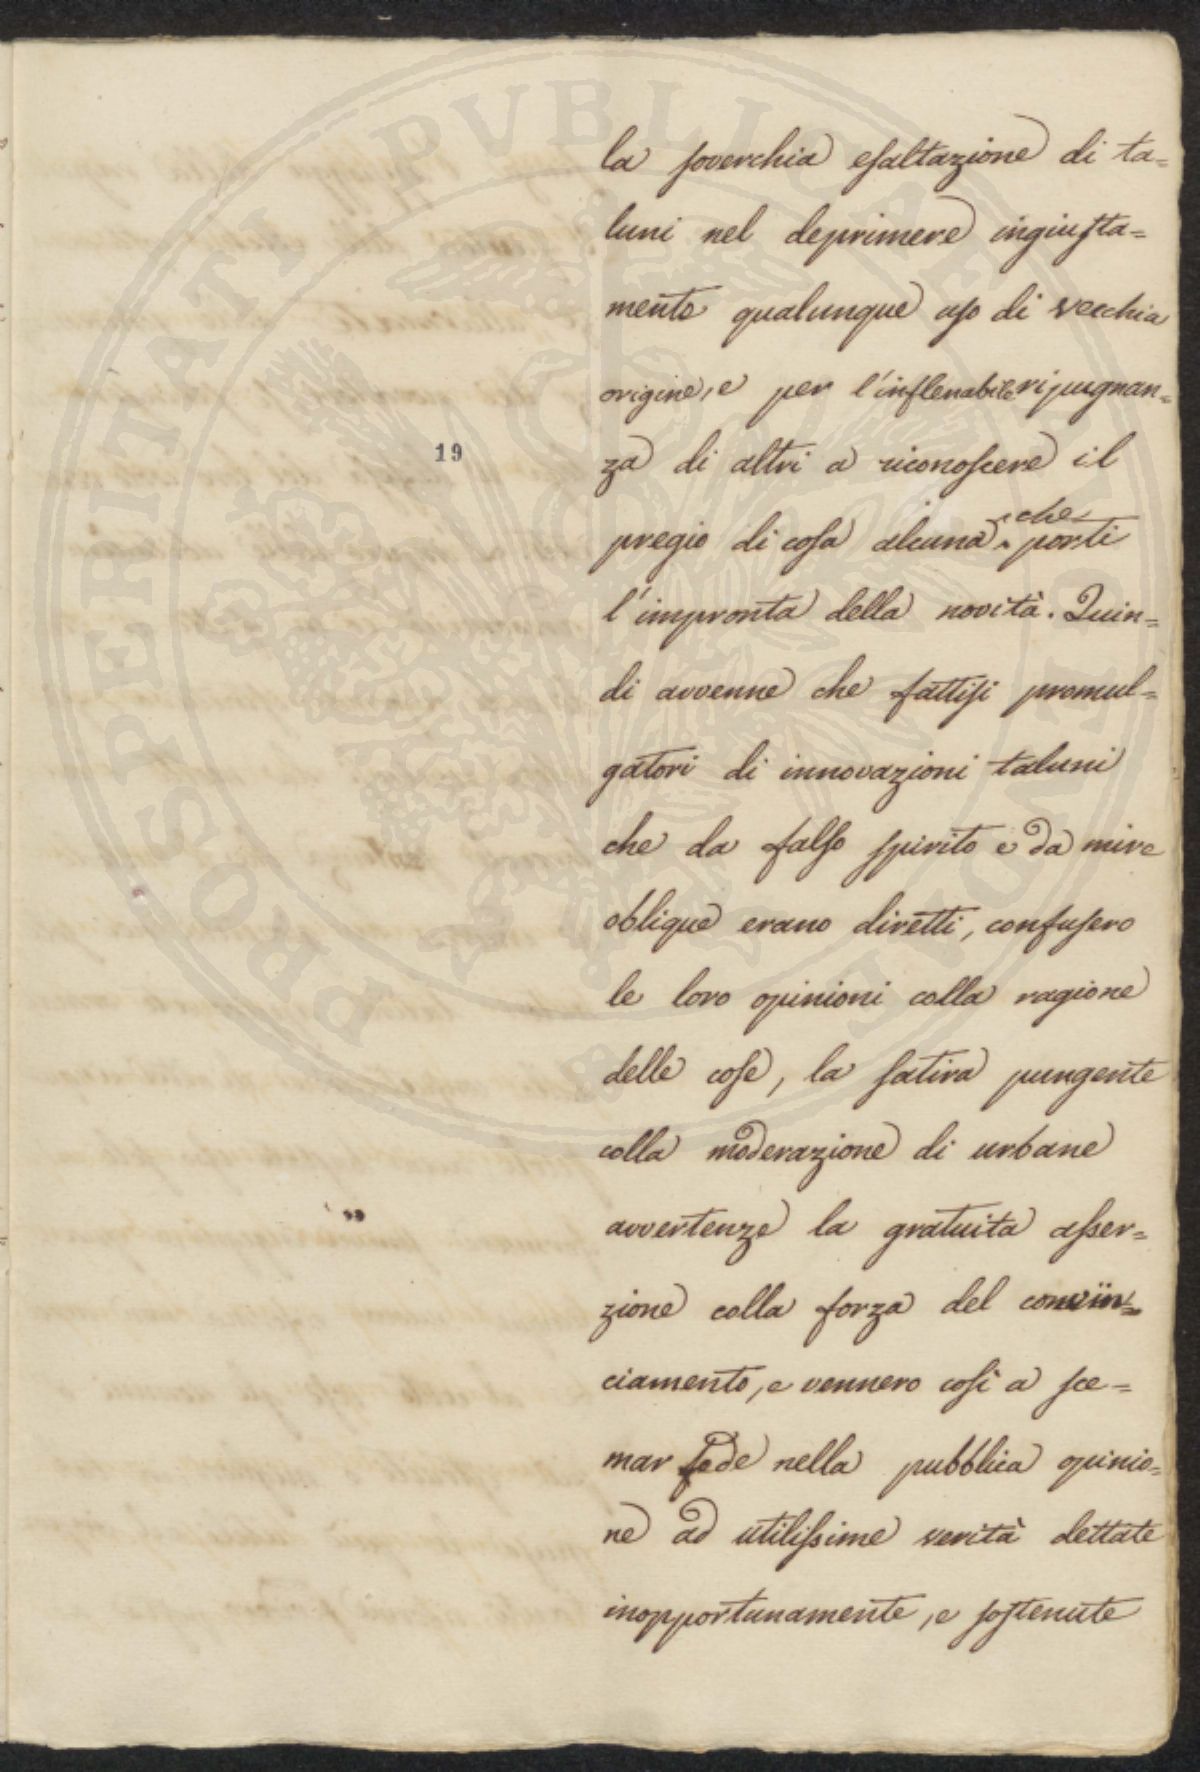 la soverchia esaltazione di ta=
luni nel deprimere ingiusta=
mente qualunque uso di vecchia
origine, e per l'inflenabile ripugnan=
za di altri a riconoscere il
pregio di cosa alcuna che porti
l'impronta della novità. Quin=
di avvenne che fattisi promul=
gatori di innovazioni taluni
che da falso spirito e da mire
oblique erano diretti, confusero
le loro opinioni colla ragione
delle cose, la satira pungente
colla moderazione di urbane
avvertenze la gratuita asser=
zione colla forza del convin=
ciamento, e vennero così a sce=
mar fede nella pubblica opinio=
ne ad utilissime verità dettate
inopportunamente, e sostenute
19
PROSPERITATI PVBLICAE